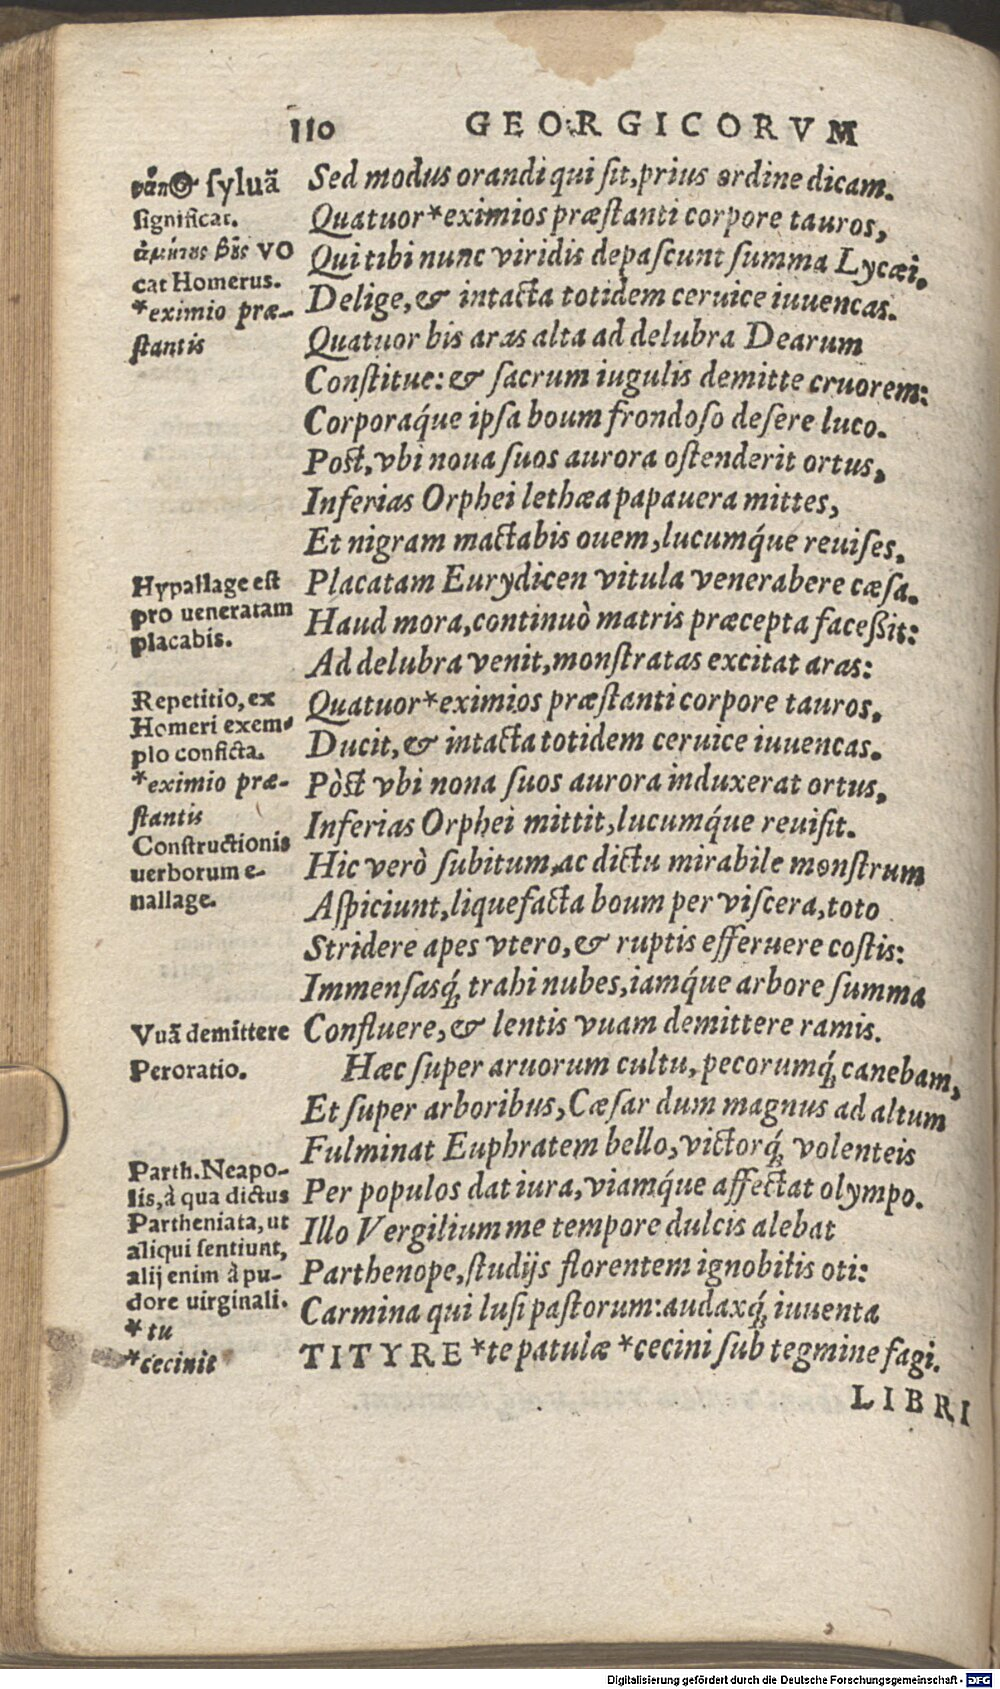 110 GEORGICORVM
Sed modus orandi qui ſit, prius ordine dicam.
Quatuor *eximios præſtanti corpore tauros,
Qui tibi nunc viridis depaſcunt ſumma Lycæi.
Delige, & intacta totidem ceruice iuuencas.
Quatuor bis aras alta ad delubra Dearum
Conſtitue: & ſacrum iugulis demitte cruorem:
Corporaq́ue ipſa boum frondoſo deſere luco.
Poſt, vbi noua ſuos aurora oſtenderit ortus,
Inferias Orphei lethæa papauera mittes,
Et nigram mactabis ouem, lucumq́ue reuiſes.
Placatam Eurydicen vitula venerabere cæſa.
Haud mora, continuò matris præcepta faceßit:
Ad delubra venit, monſtratas excitat aras:
Quatuor *eximios præſtanti corpore tauros.
Ducit, & intacta totidem ceruice iuuencas.
Pòſt vbi nona ſuos aurora induxerat ortus,
Inferias Orphei mittit, lucumq́ue reuiſit.
Hic verò ſubitum, ac dictu mirabile monſtrum
Aſpiciunt, liquefacta boum per viſcera, toto
Stridere apes vtero, & ruptis efferuere coſtis:
Immenſasq́; trahi nubes, iamq́ue arbore ſumma
Confluere, & lentis vuam demittere ramis.
Hæc ſuper aruorum cultu, pecorumq́; canebam,
Et ſuper arboribus, Cæſar dum magnus ad altum
Fulminat Euphratem bello, victorq́; volenteis
Per populos dat iura, viamq́ue affectat olympo.
Illo Vergilium me tempore dulcis alebat
Parthenope, ſtudijs florentem ignobilis oti:
Carmina qui luſi paſtorum: audaxq́; iuuenta
TITYRE *te patulæ *cecini ſub tegmine fagi.
LIBRI
ſyluā
ſignificat.
VO
cat Homerus.
*eximio præ-
ſtantis
Hypallage eſt
pro ueneratam
placabis.
Repetitio, ex
Homeri exem-
plo conficta.
*eximio præ-
ſtantis
Conſtructionis
uerborum e-
nallage.
Vuā demittere
Peroratio.
Parth. Neapo-
lis, à qua dictus
Partheniata, ut
aliqui ſentiunt,
alij enim à pu-
dore uirginali.
*tu
*cecinit
Digitalisierung gefördert durch die Deutsche Forschungsgemeinschaft - DFG